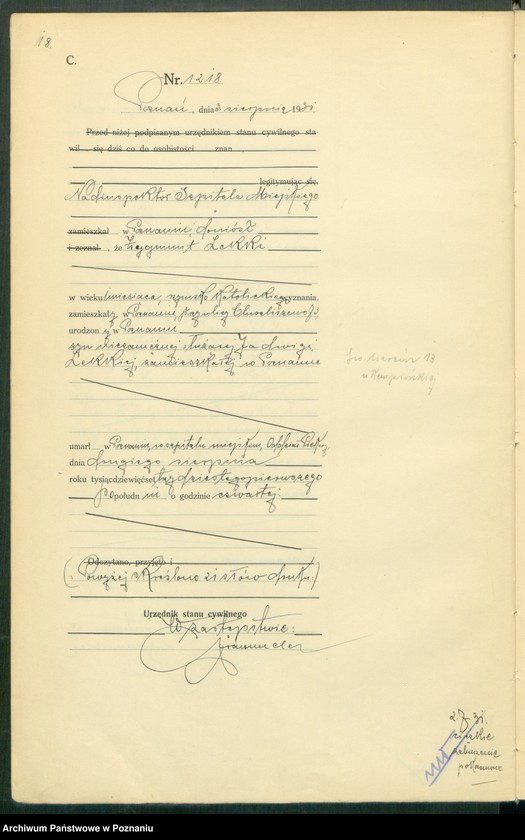 18.
C.
Nr. 1218
Poznań, dnia 3 sierpnia 1931
Przed niżej podpisanym urzędnikiem stanu cywilnego sta
wił się dziś co do osobistości znan
legitymując się
Nadinspektor Szpitala Miejskiego
zamieszkał w Poznaniu, doniósł
i zeznał, że Zygmunt Lekki
w wieku miesiąca, rzymsko katolickiego wyznania,
zamieszkały w Poznaniu, przy ulicy Chwaliszewo
urodzony w Poznaniu
syn niezamężnej służącej Jadwigi
Lekkiej, zamieszkałej w Poznaniu
umarł w Poznaniu, w szpitalu miejskim,
dnia drugiego sierpnia
roku tysiącdziewięćset trzydziestego pierwszego
po południu o godzinie czwartej.
Odczytano, przyjęto i
(Powyżej skreślono 21 słów druku.)
Urzędnik stanu cywilnego
W zastępstwie:
Archiwum Państwowe w Poznaniu